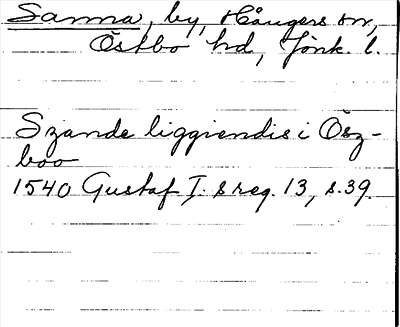 Sanna, by, Hångers sn,
Östbo hd, Jönk. l.
Szande liggiendis i Ösz-
boo
1540 Gustaf I. s reg. 13, s. 39.